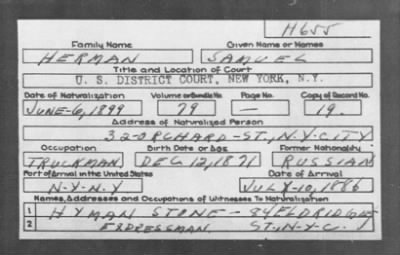 H655
Family Name Given Name or Names
HERMAN SAMUEL
Title and Location of Court
U. S. DISTRICT COURT, NEW YORK, N.Y.
Date of Naturalization Volume or Bundle No. Page No. Copy of Record No.
JUNE-6, 1899 79 — 19.
Address of Naturalized Person
32-ORCHARD-ST., N.Y.CITY
Occupation Birth Date or Age Former Nationality
TRUCKMAN DEC 12, 1871 RUSSIAN
Port of Arrival in the United States Date of Arrival
N-Y-N.Y JULY-10, 1886
Names, Addresses and Occupations of Witnesses To Naturalization
1 HYMAN STONE- 84 ELDRIDGE
2 EXPRESSMAN ST., N-Y-C.